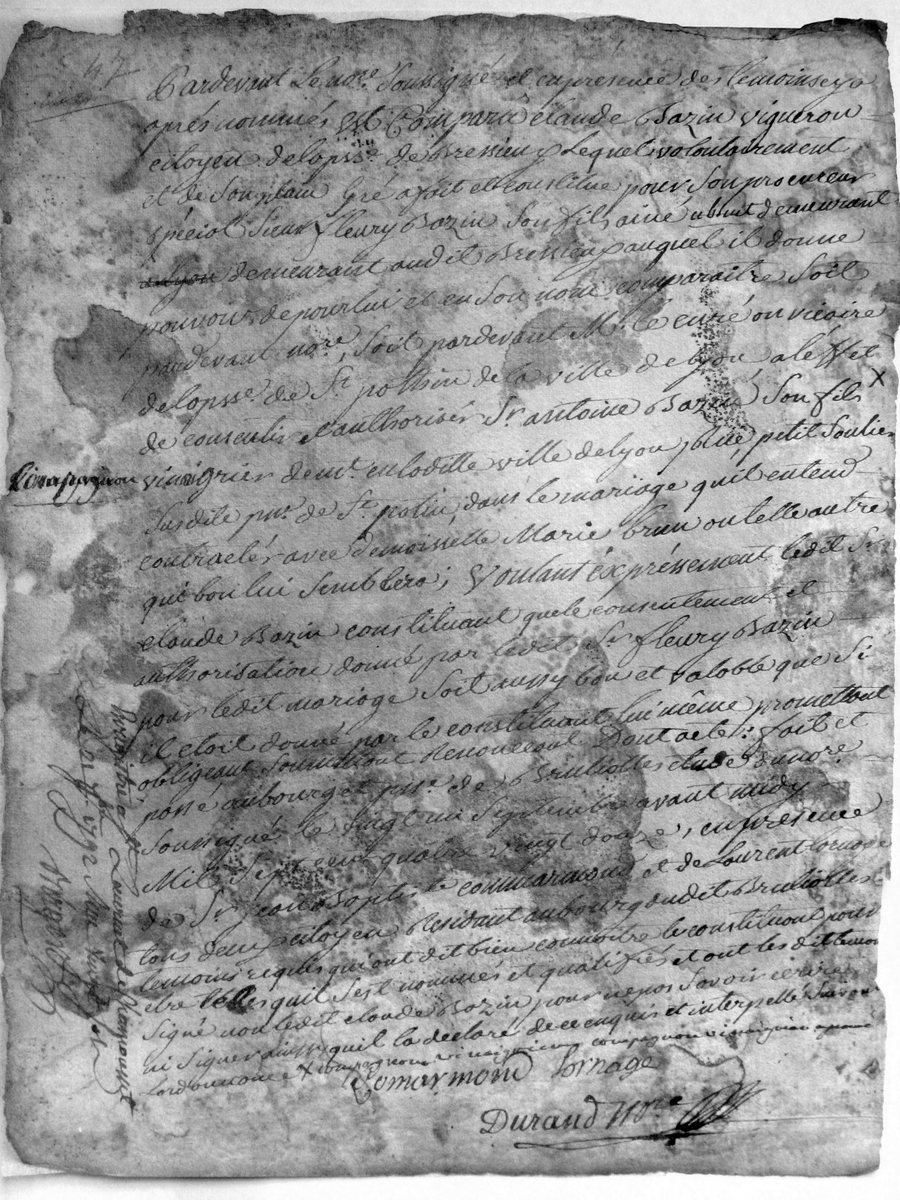 Pardevant Le nore. Soussigné et en presence des temoins cy
après nommés, Est Comparu Claude Bazin vigneron
citoyen de la psse. de Bressieux Lequel volontairement
et de son plain Gré a fait et constitué pour son procureur
spécial Sieur fleury Bazin Son fils ainé demeurant
demeurant audit Bressieux auquel il donne
pouvoir de pour lui et en Son nom comparaitre Soit
pardevant nore, Soit pardevant Mr. le curé ou vicaire
de la psse. de St. pothin de la ville de Lyon a l'effet
de consentir et authoriser Sr. antoine Bazin Son fils X
vinaigrier demt. en la ditte ville de Lyon petit Soulier
Compagnon
Susdite de St. potin, dans le mariage qu'il entend
contracter avec demoiselle Marie brun ou telle autre
que bon lui Semblera; Voulant expréssement ledit Sr.
Claude Bazin constituant que le consentement et
authorisation donné par ledt. Sr. fleury Bazin
pour ledit mariage Soit aussy bon et valable que Si
il etoit donné par le constituant lui même promettant
obligeant Soumettant Renonceant Dont acte: fait et
passé au bourg et psse. de Brulioles etude du nore.
Soussigné le vingt un Septembre avant midy
Mil Sept cent quatre vingt douze, en presence
de Sr. Jean Commarmond et de Laurent Lornage
tous deux citoyen Residant au bourg dudit Brulioles
temoins requis qui ont dit bien connoitre le constituant pour
etre tel qu'il s'est nommés et qualifié et ont les dit temoins
Signé non ledit Claude Bazin pour ne pas Savoir ecrire
ni Signer ainsi qu'il la declaré de ce enquis et interpellé
Lordonnance X compagnon vinaigrier
Comarmond Lornage
Durand Nore